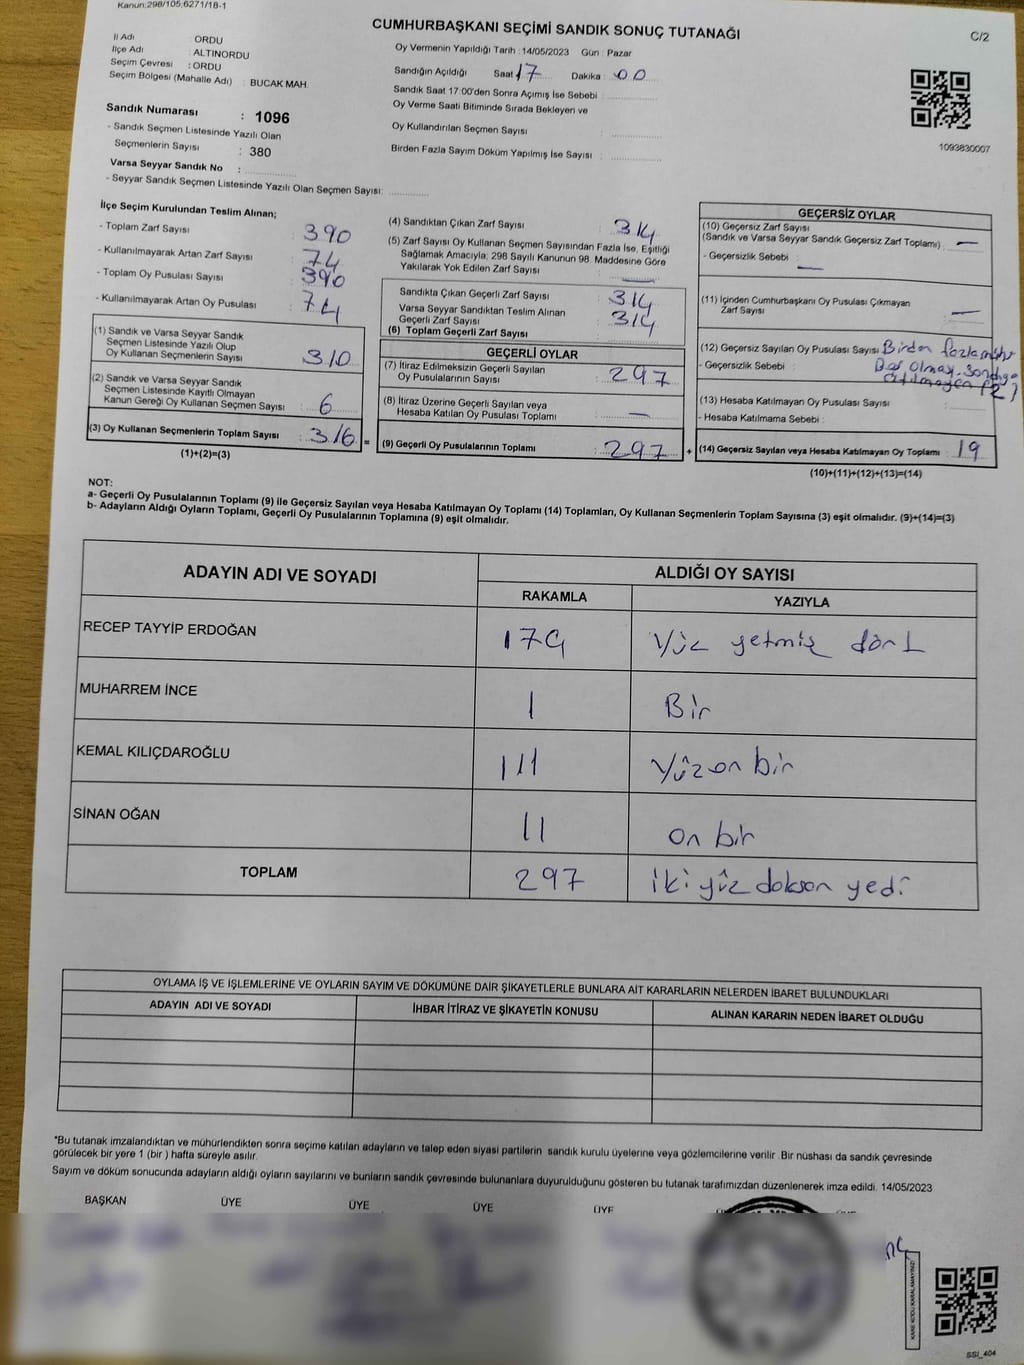 Kanun:298/105,6271/18-1
CUMHURBAŞKANI SEÇİMİ SANDIK SONUÇ TUTANAĞI
C/2
İl Adı : ORDU
İlçe Adı : ALTINORDU
Seçim Çevresi : ORDU
Seçim Bölgesi (Mahalle Adı) : BUCAK MAH.
Oy Vermenin Yapıldığı Tarih : 14/05/2023 Gün : Pazar
Sandığın Açıldığı Saat 17 Dakika : 00
Sandık Saat 17:00'den Sonra Açımış İse Sebebi :
Oy Verme Saati Bitiminde Sırada Bekleyen ve
Oy Kullandırılan Seçmen Sayısı :
Birden Fazla Sayım Döküm Yapılmış İse Sayısı :
1093830007
Sandık Numarası : 1096
- Sandık Seçmen Listesinde Yazılı Olan
Seçmenlerin Sayısı : 380
Varsa Seyyar Sandık No :
- Seyyar Sandık Seçmen Listesinde Yazılı Olan Seçmen Sayısı:
İlçe Seçim Kurulundan Teslim Alınan;
- Toplam Zarf Sayısı : 390
- Kullanılmayarak Artan Zarf Sayısı : 74
- Toplam Oy Pusulası Sayısı : 390
- Kullanılmayarak Artan Oy Pusulası : 74
(1) Sandık ve Varsa Seyyar Sandık
Seçmen Listesinde Yazılı Olup
Oy Kullanan Seçmenlerin Sayısı : 310
(2) Sandık ve Varsa Seyyar Sandık
Seçmen Listesinde Kayıtlı Olmayan
Kanun Gereği Oy Kullanan Seçmen Sayısı : 6
(3) Oy Kullanan Seçmenlerin Toplam Sayısı : 316 =
(1)+(2)=(3)
(4) Sandıktan Çıkan Zarf Sayısı : 314
(5) Zarf Sayısı Oy Kullanan Seçmen Sayısından Fazla İse, Eşitliği
Sağlamak Amacıyla; 298 Sayılı Kanunun 98. Maddesine Göre
Yakılarak Yok Edilen Zarf Sayısı : —
Sandıkta Çıkan Geçerli Zarf Sayısı : 314
Varsa Seyyar Sandıktan Teslim Alınan
Geçerli Zarf Sayısı : 314
(6) Toplam Geçerli Zarf Sayısı
GEÇERLİ OYLAR
(7) İtiraz Edilmeksizin Geçerli Sayılan
Oy Pusulalarının Sayısı : 297
(8) İtiraz Üzerine Geçerli Sayılan veya
Hesaba Katılan Oy Pusulası Toplamı : —
(9) Geçerli Oy Pusulalarının Toplamı : 297 +
GEÇERSİZ OYLAR
(10) Geçersiz Zarf Sayısı
(Sandık ve Varsa Seyyar Sandık Geçersiz Zarf Toplamı) : —
- Geçersizlik Sebebi : —
(11) İçinden Cumhurbaşkanı Oy Pusulası Çıkmayan
Zarf Sayısı : —
(12) Geçersiz Sayılan Oy Pusulası Sayısı : Birden fazla
- Geçersizlik Sebebi :
(13) Hesaba Katılmayan Oy Pusulası Sayısı :
- Hesaba Katılmama Sebebi :
(14) Geçersiz Sayılan veya Hesaba Katılmayan Oy Toplamı : 19
(10)+(11)+(12)+(13)=(14)
NOT:
a- Geçerli Oy Pusulalarının Toplamı (9) ile Geçersiz Sayılan veya Hesaba Katılmayan Oy Toplamı (14) Toplamları, Oy Kullanan Seçmenlerin Toplam Sayısına (3) eşit olmalıdır. (9)+(14)=(3)
b- Adayların Aldığı Oyların Toplamı, Geçerli Oy Pusulalarının Toplamına (9) eşit olmalıdır.
ADAYIN ADI VE SOYADI
ALDIĞI OY SAYISI
RAKAMLA YAZIYLA
RECEP TAYYİP ERDOĞAN 174 Yüz yetmiş dört
MUHARREM İNCE 1 Bir
KEMAL KILIÇDAROĞLU 111 Yüz on bir
SİNAN OĞAN 11 on bir
TOPLAM 297 iki yüz doksan yedi
OYLAMA İŞ VE İŞLEMLERİNE VE OYLARIN SAYIM VE DÖKÜMÜNE DAİR ŞİKAYETLERLE BUNLARA AİT KARARLARIN NELERDEN İBARET BULUNDUKLARI
ADAYIN ADI VE SOYADI İHBAR İTİRAZ VE ŞİKAYETİN KONUSU ALINAN KARARIN NEDEN İBARET OLDUĞU
*Bu tutanak imzalandıktan ve mühürlendikten sonra seçime katılan adayların ve talep eden siyasi partilerin sandık kurulu üyelerine veya gözlemcilerine verilir. Bir nüshası da sandık çevresinde
görülecek bir yere 1 (bir) hafta süreyle asılır.
Sayım ve döküm sonucunda adayların aldığı oyların sayılarını ve bunların sandık çevresinde bulunanlara duyurulduğunu gösteren bu tutanak tarafımızdan düzenlenerek imza edildi. 14/05/2023
BAŞKAN ÜYE ÜYE ÜYE ÜYE
KARE KODU KARALAMAYINIZ!
SSI_404